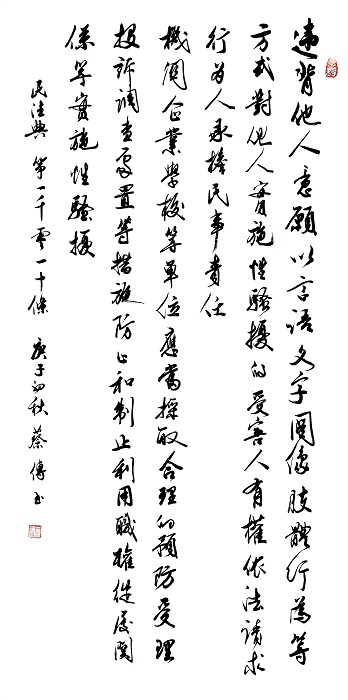 違背他人意願以言語文字圖像肢體行為等
方式對他人實施性騷擾的受害人有權依法請求
行為人承擔民事責任
機關企業學校等單位應當採取合理的預防受理
投訴調查處置等措施防止和制止利用職權從屬關
係等實施性騷擾
民法典第一千零一十條 庚子初秋 蔡傳書